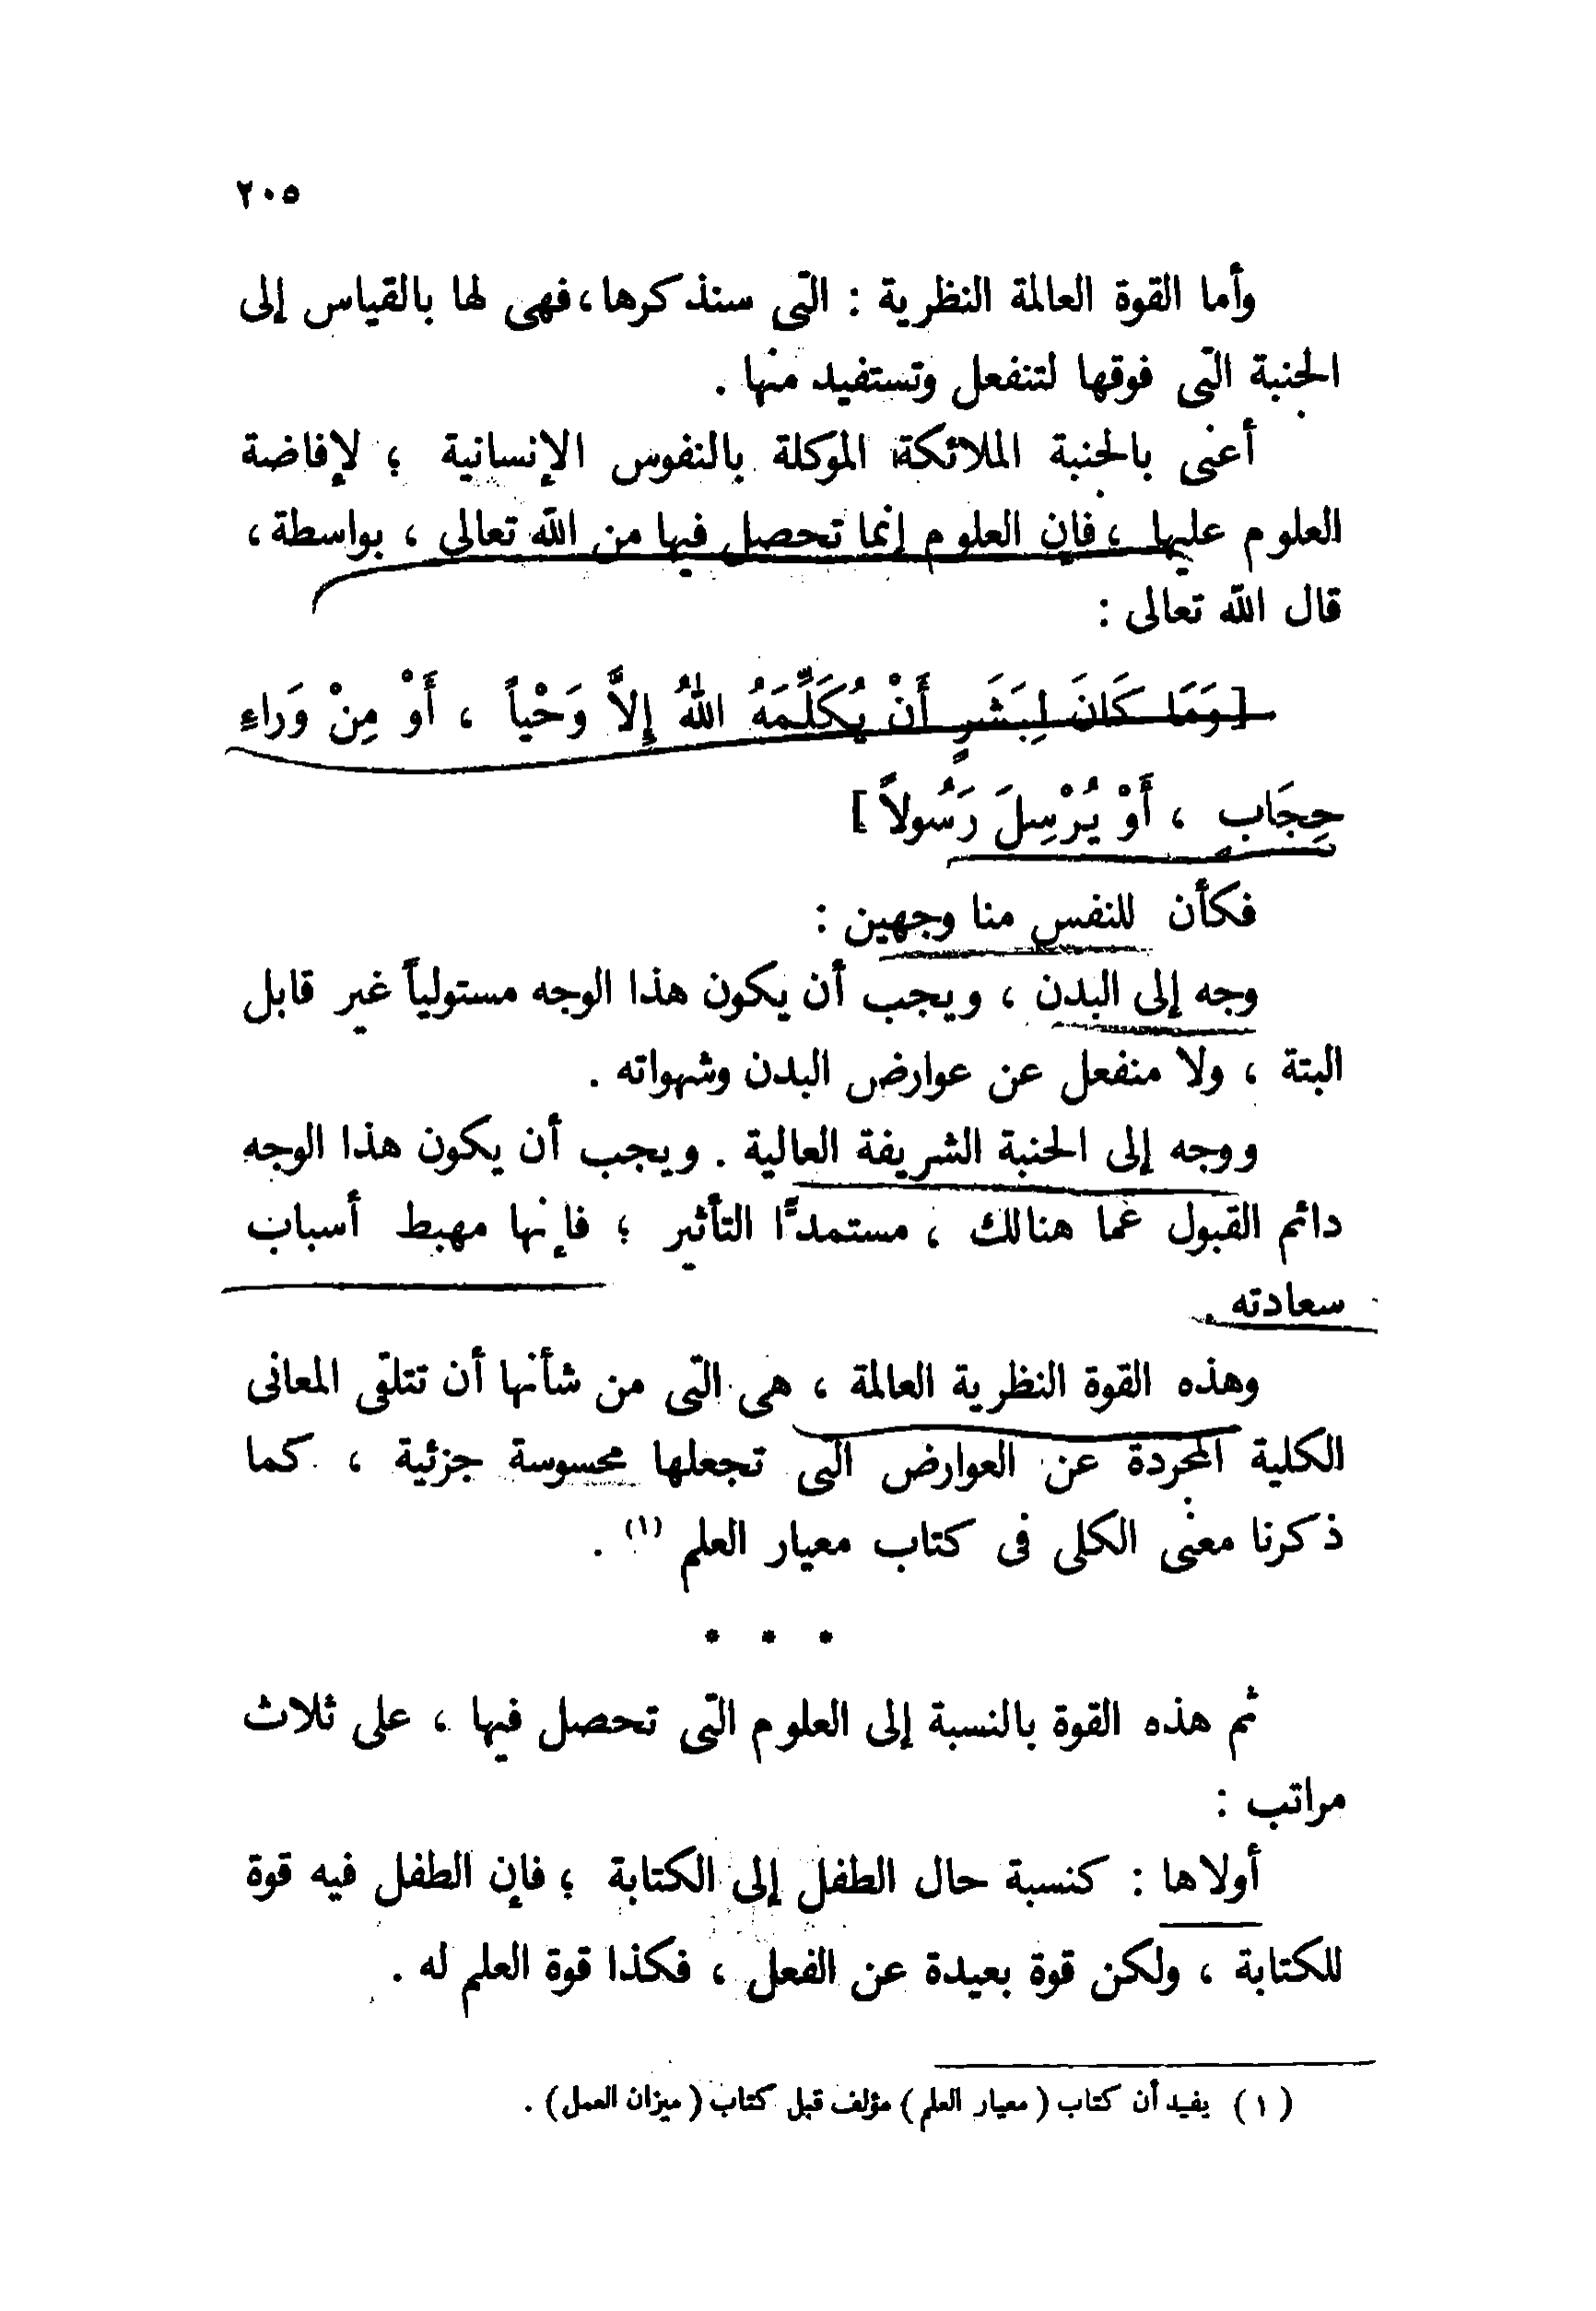 ٢٠٥
وأما القوة العالمة النظرية : التى سنذكرها، فهى لها بالقياس إلى
الجنبة التى فوقها لتنفعل وتستفيد منها .
أعنى بالجنبة الملائكة الموكلة بالنفوس الإنسانية ؛ لإفاضة
العلوم عليها ، فإن العلوم إنما تحصل فيها من الله تعالى ، بواسطة ،
قال الله تعالى :
[وَمَا كَانَ لِبَشَرٍ أَنْ يُكَلِّمَهُ اللهُ إِلاَّ وَحْياً ، أَوْ مِنْ وَرَاءِ
حِجَابٍ ، أَوْ يُرْسِلَ رَسُولاً]
فكأن للنفس منا وجهين :
وجه إلى البدن ، ويجب أن يكون هذا الوجه مستولياً غير قابل
البتة ، ولا منفعل عن عوارض البدن وشهواته .
ووجه إلى الجنبة الشريفة العالية . ويجب أن يكون هذا الوجه
دائم القبول عما هنالك ، مستمدًّا التأثير ؛ فإنها مهبط أسباب
سعادته .
وهذه القوة النظرية العالمة ، هى التى من شأنها أن تتلقى المعانى
الكلية المجردة عن العوارض التى تجعلها محسوسة جزئية ، كما
ذكرنا معنى الكلى فى كتاب معيار العلم (١) .
* * *
ثم هذه القوة بالنسبة إلى العلوم التى تحصل فيها ، على ثلاث
مراتب :
أولاها : كنسبة حال الطفل إلى الكتابة ؛ فإن الطفل فيه قوة
للكتابة ، ولكن قوة بعيدة عن الفعل ، فكذا قوة العلم له .
(١) يفيد أن كتاب (معيار العلم) مؤلف قبل كتاب (ميزان العمل) .